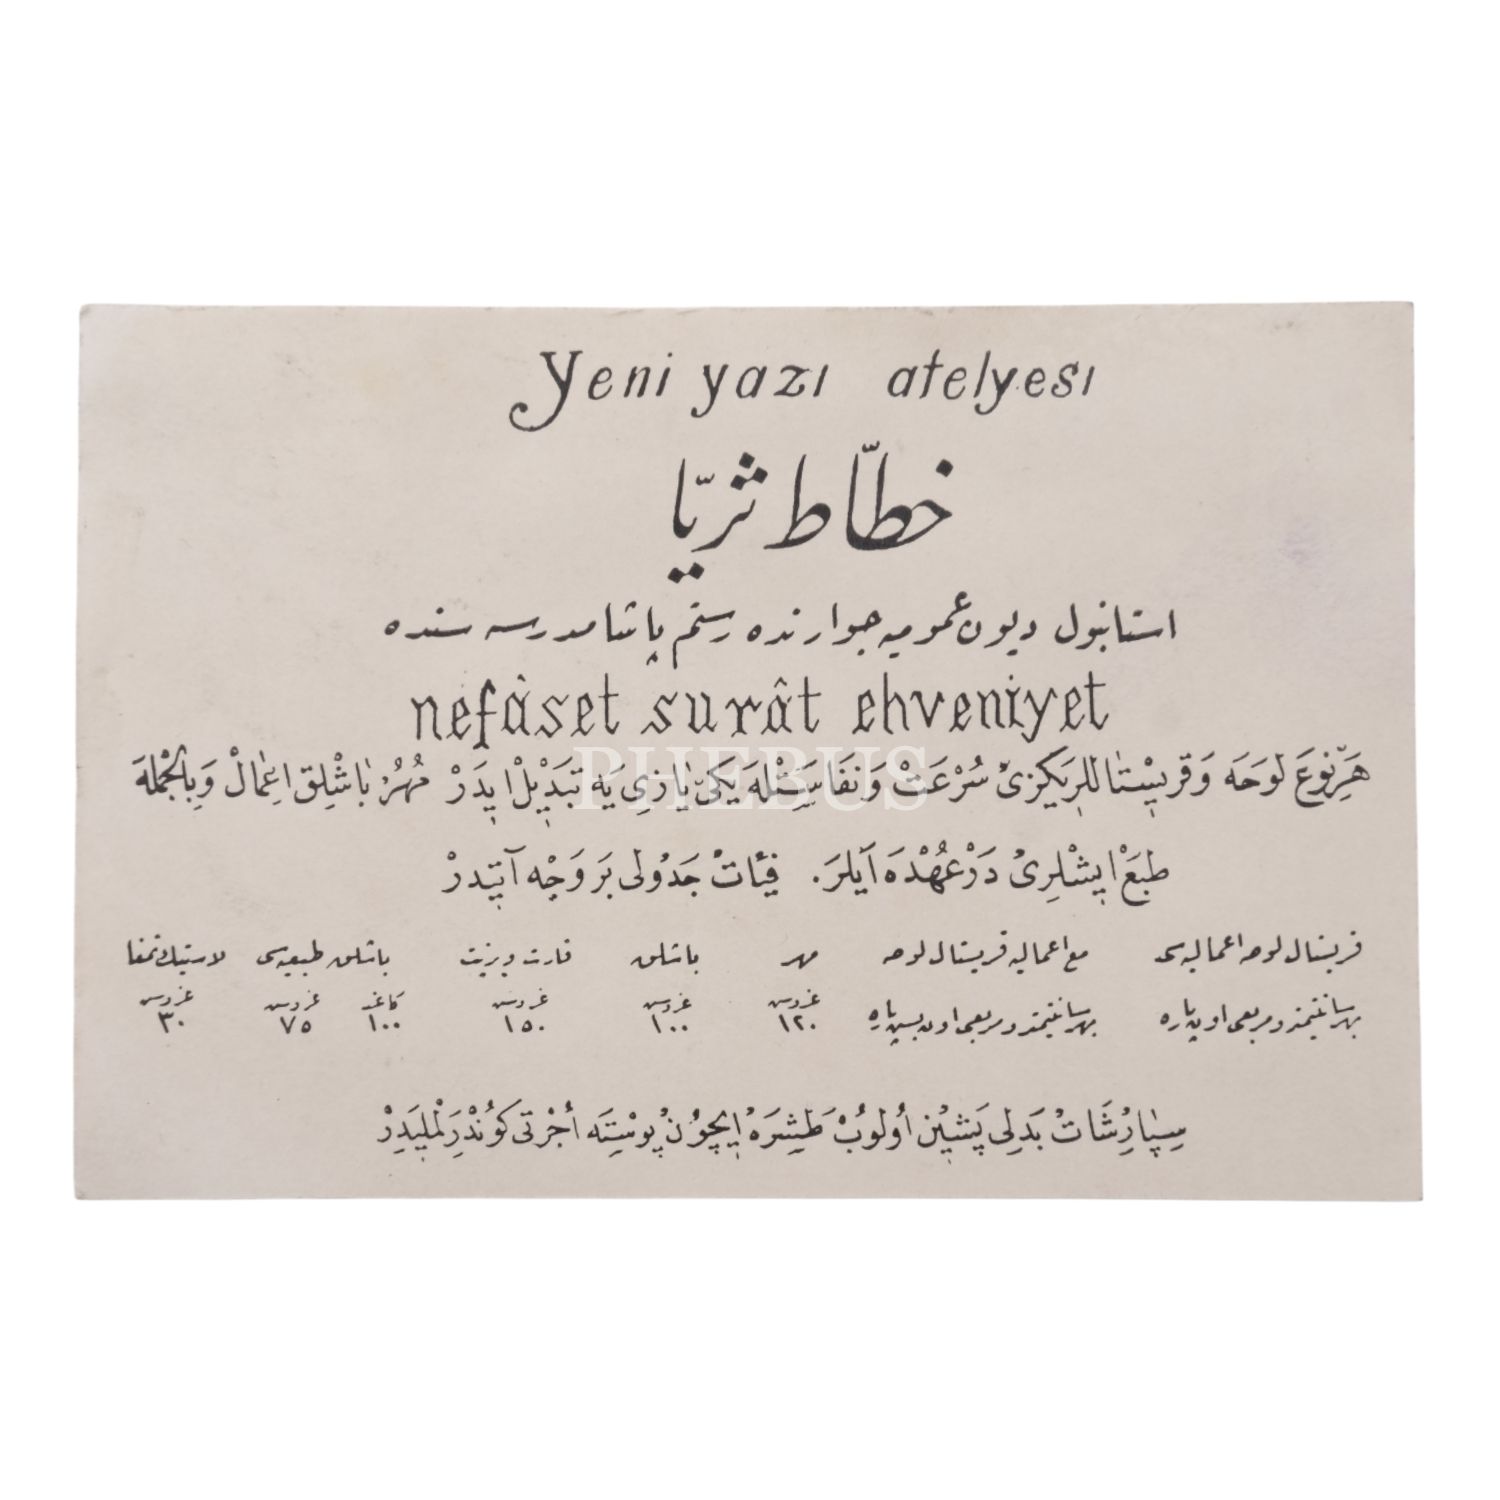 Yeni yazı atelyesı
خطّاط ثريّا
استانبول ديون عموميه جوارنده رستم پاشا مدرسه سنده
nefâset surât ehveniyet
هَرْ نَوعَ لَوحَه وَقريسْتاللرِيكِزىْ سُرْعَتْ وَنَفَاسَتْلهَ يَكى يٰازىِ يَه تَبَدْيلْ اِيدَرْ مُهُرْ بٰاشْلِق اِعْمالْ وَبِالْجُمْلهَ
طَبعْ اِيشْلرِىْ دَرْعُهْدَه اَيلَر. فيئاتْ جَدْولى بَر وَجْه آتيدرْ
قريستال لوحه اعماليه سى مع اعماليه قريستال لوحه مهر باشلق قارت ويزيت باشلق طبعيه سى لاستيك تمغا
بهر سانتيمترو مربعى اون پاره بهر سانتيمترو مربعى اون بش پاره غروس ١٢٠ غروس ١٠٠ غروس ١٥٠ كاغد ١٠٠ غروس ٧٥ غروس ٣٠
سِپٰارِشَاتْ بَدَلى پَشيْن اُولوُبْ طَشِرَهْ اِيچوُنْ پوسْتَه اُجْرَتى كوُندْرَلْمَليدِرْ
PHEBUS